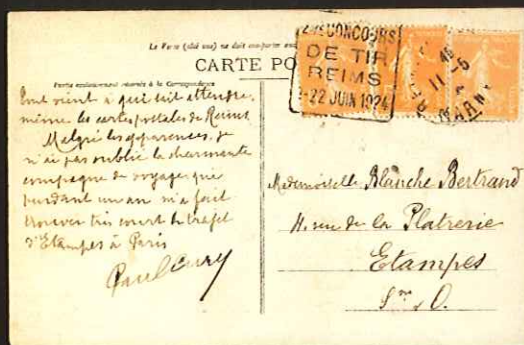 Le Verso (côté vue) ne doit comporter
CARTE PO
Partie exclusivement réservée à la Correspondance
CONCOURS
DE TIR
REIMS
-22 JUIN 1924
11-6
MARNE
Tout vient à qui sait attendre,
même les cartes postales de Reims
Malgré les apparences, je
n'ai pas oublié la charmante
compagne de voyages qui
pendant un an m'a fait
trouver très court le trajet
d'Etampes à Paris
Paul
Mademoiselle Blanche Bertrand
11. rue de la Platrerie
Etampes
S. & O.